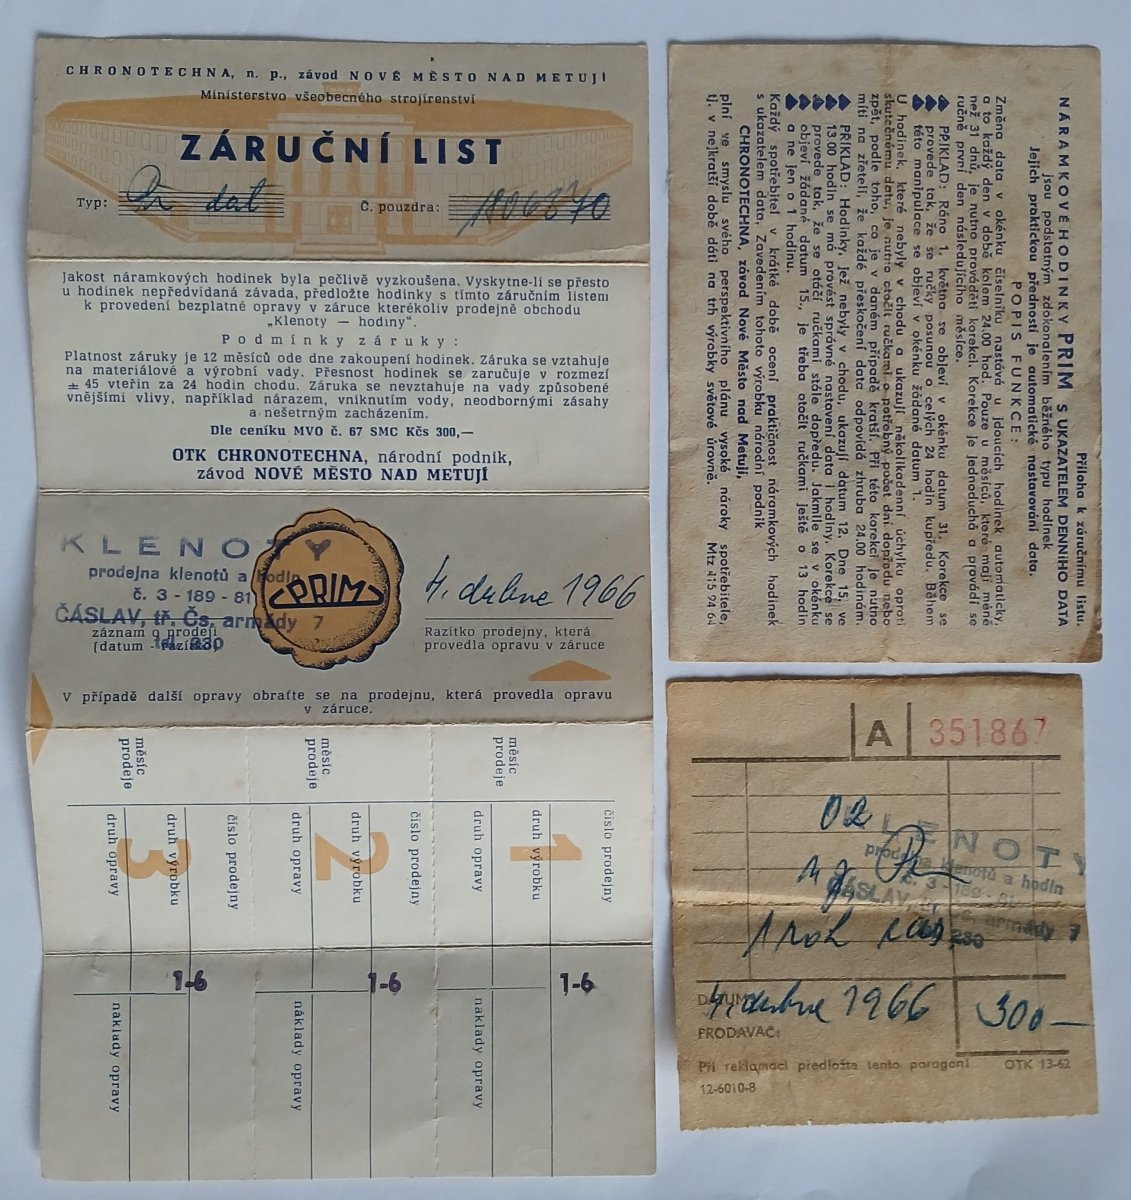 CHRONOTECHNA, n. p., závod NOVÉ MĚSTO NAD METUJÍ
Ministerstvo všeobecného strojírenství
ZÁRUČNÍ LIST
Typ: Pr dat Č. pouzdra:
Jakost náramkových hodinek byla pečlivě vyzkoušena. Vyskytne-li se přesto
u hodinek nepředvídaná závada, předložte hodinky s tímto záručním listem
k provedení bezplatné opravy v záruce kterékoliv prodejně obchodu
„Klenoty — hodiny".
Podmínky záruky:
Platnost záruky je 12 měsíců ode dne zakoupení hodinek. Záruka se vztahuje
na materiálové a výrobní vady. Přesnost hodinek se zaručuje v rozmezí
± 45 vteřin za 24 hodin chodu. Záruka se nevztahuje na vady způsobené
vnějšími vlivy, například nárazem, vniknutím vody, neodbornými zásahy
a nešetrným zacházením.
Dle ceníku MVO č. 67 SMC Kčs 300,—
OTK CHRONOTECHNA, národní podnik,
závod NOVÉ MĚSTO NAD METUJÍ
KLENOTY
prodejna klenotů a hodin
č. 3 - 189 - 81
ČÁSLAV, tř. Čs. armády 7
tel. 230
záznam o prodeji
(datum - razítko)
PRIM
4. dubna 1966
Razítko prodejny, která
provedla opravu v záruce
V případě další opravy obraťte se na prodejnu, která provedla opravu
v záruce.
měsíc
prodeje
číslo prodejny
1
druh výrobku
druh opravy
1-6
náklady opravy
měsíc
prodeje
číslo prodejny
2
druh výrobku
druh opravy
1-6
náklady opravy
měsíc
prodeje
číslo prodejny
3
druh výrobku
druh opravy
1-6
náklady opravy
Příloha k záručnímu listu.
NÁRAMKOVÉ HODINKY PRIM S UKAZATELEM DENNÍHO DATA
jsou podstatným zdokonalením běžného typu hodinek
Jejich praktickou předností je automatické nastavování data.
POPIS FUNKCE:
Změna data v okénku číselníku nastává u jdoucích hodinek automaticky,
a to každý den v době kolem 24.00 hod. Pouze u měsíců, které mají méně
než 31 dnů, je nutno prováděti korekci. Korekce je jednoduchá a provádí se
ručně první den následujícího měsíce.
PŘÍKLAD: Ráno 1. května se objeví v okénku datum 31. Korekce se
provede tak, že se ručky posunou o celých 24 hodin kupředu. Během
této manipulace se objeví v okénku žádané datum 1.
U hodinek, které nebyly v chodu a ukazují několikadenní úchylku oproti
skutečnému datu, je nutno otočit ručkami o potřebný počet dní dopředu nebo
zpět, podle toho, co je v daném případě kratší. Při této korekci je nutno
míti na zřeteli, že každé přeskočení data odpovídá zhruba 24.00 hodinám.
PŘÍKLAD: Hodinky, jež nebyly v chodu, ukazují datum 12. Dne 15. ve
13.00 hodin se má provést správné nastavení data i hodiny. Korekce se
provede tak, že se otáčí ručkami stále dopředu. Jakmile se v okénku
objeví žádané datum 15., je třeba otočit ručkami ještě o 13 hodin
a ne jen o 1 hodinu.
Každý spotřebitel v krátké době ocení praktičnost náramkových hodinek
s ukazatelem data. Zavedením tohoto výrobku národní podnik
CHRONOTECHNA, závod Nové Město nad Metují,
plní ve smyslu svého perspektivního plánu vysoké nároky spotřebitele,
tj. v nejkratší době dáti na trh výrobky světové úrovně. Mtz 415 94 64
A 351867
02
KLENOTY
prodejna klenotů a hodin
č. 3 - 189 - 81
ČÁSLAV, tř. Čs. armády 7
230
1 rok
DATUM: 4. dubna 1966
300—
PRODAVAČ:
Při reklamaci předložte tento paragon! OTK 13-62
12-6010-8